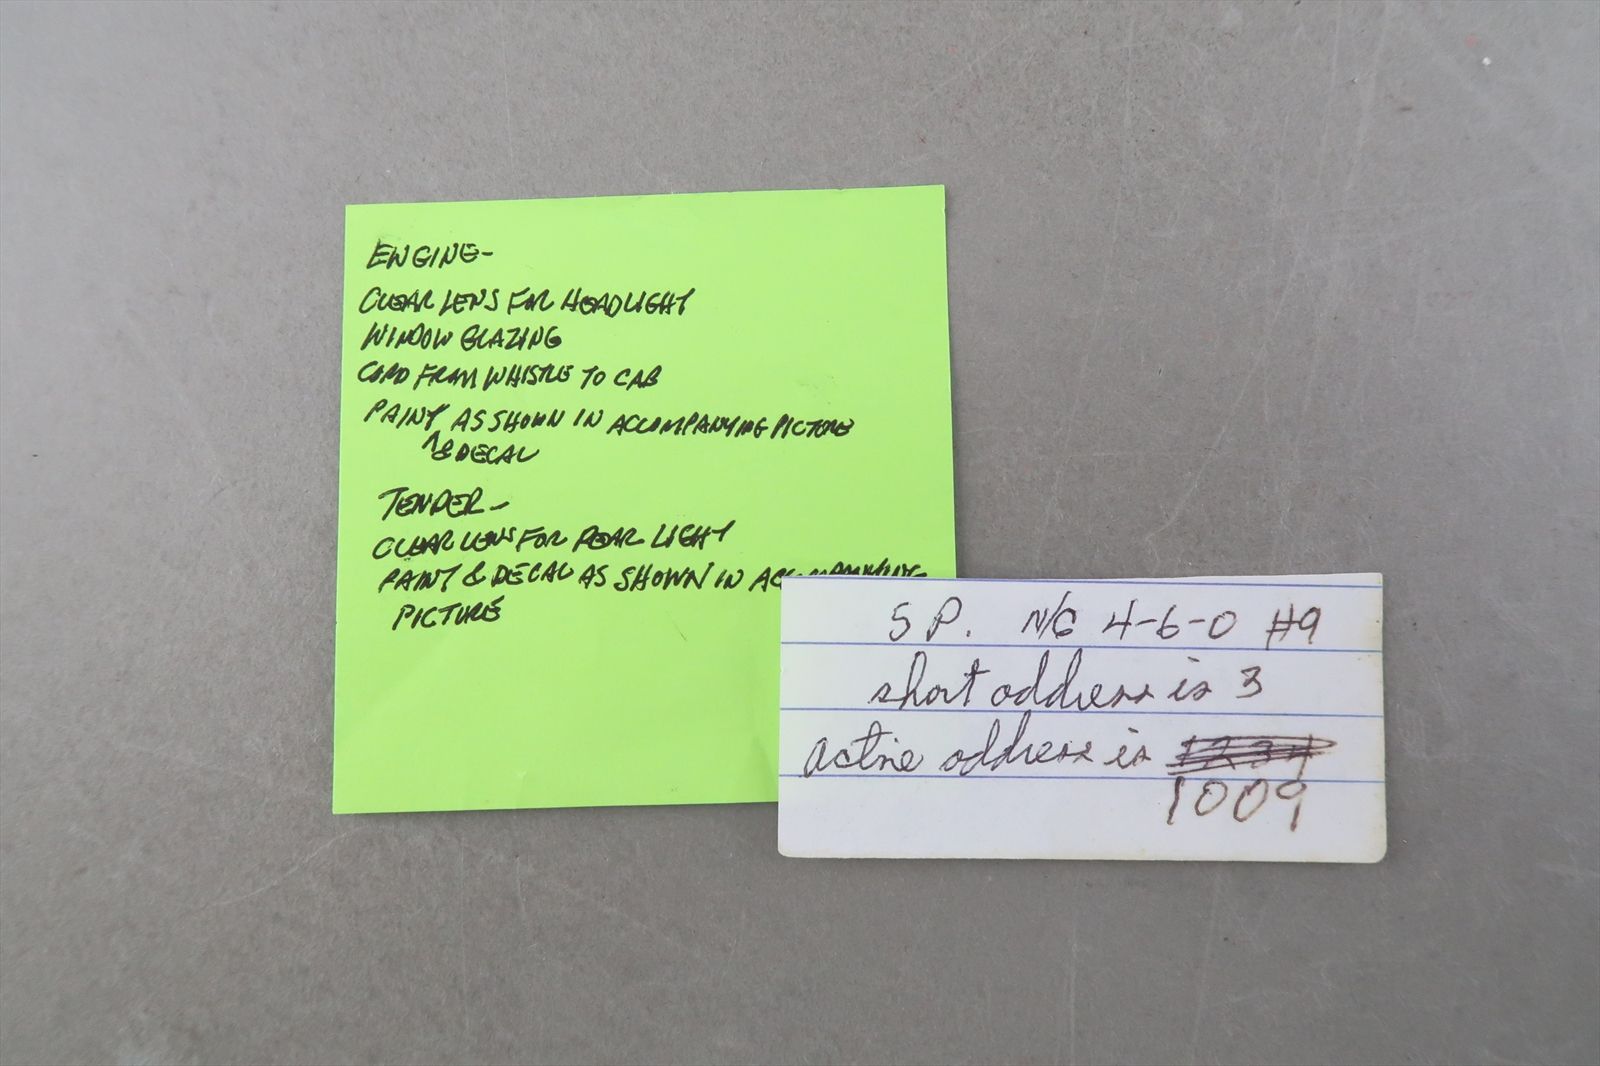 ENGINE-
CLEAR LENS FOR HEADLIGHT
WINDOW GLAZING
CORD FROM WHISTLE TO CAB
PAINT AS SHOWN IN ACCOMPANYING PICTURE
^& DECAL
TENDER-
CLEAR LENS FOR REAR LIGHT
PAINT & DECAL AS SHOWN IN ACCOMPANYING
PICTURE
SP. N/G 4-6-0 #9
short address is 3
active address is 1234
1009